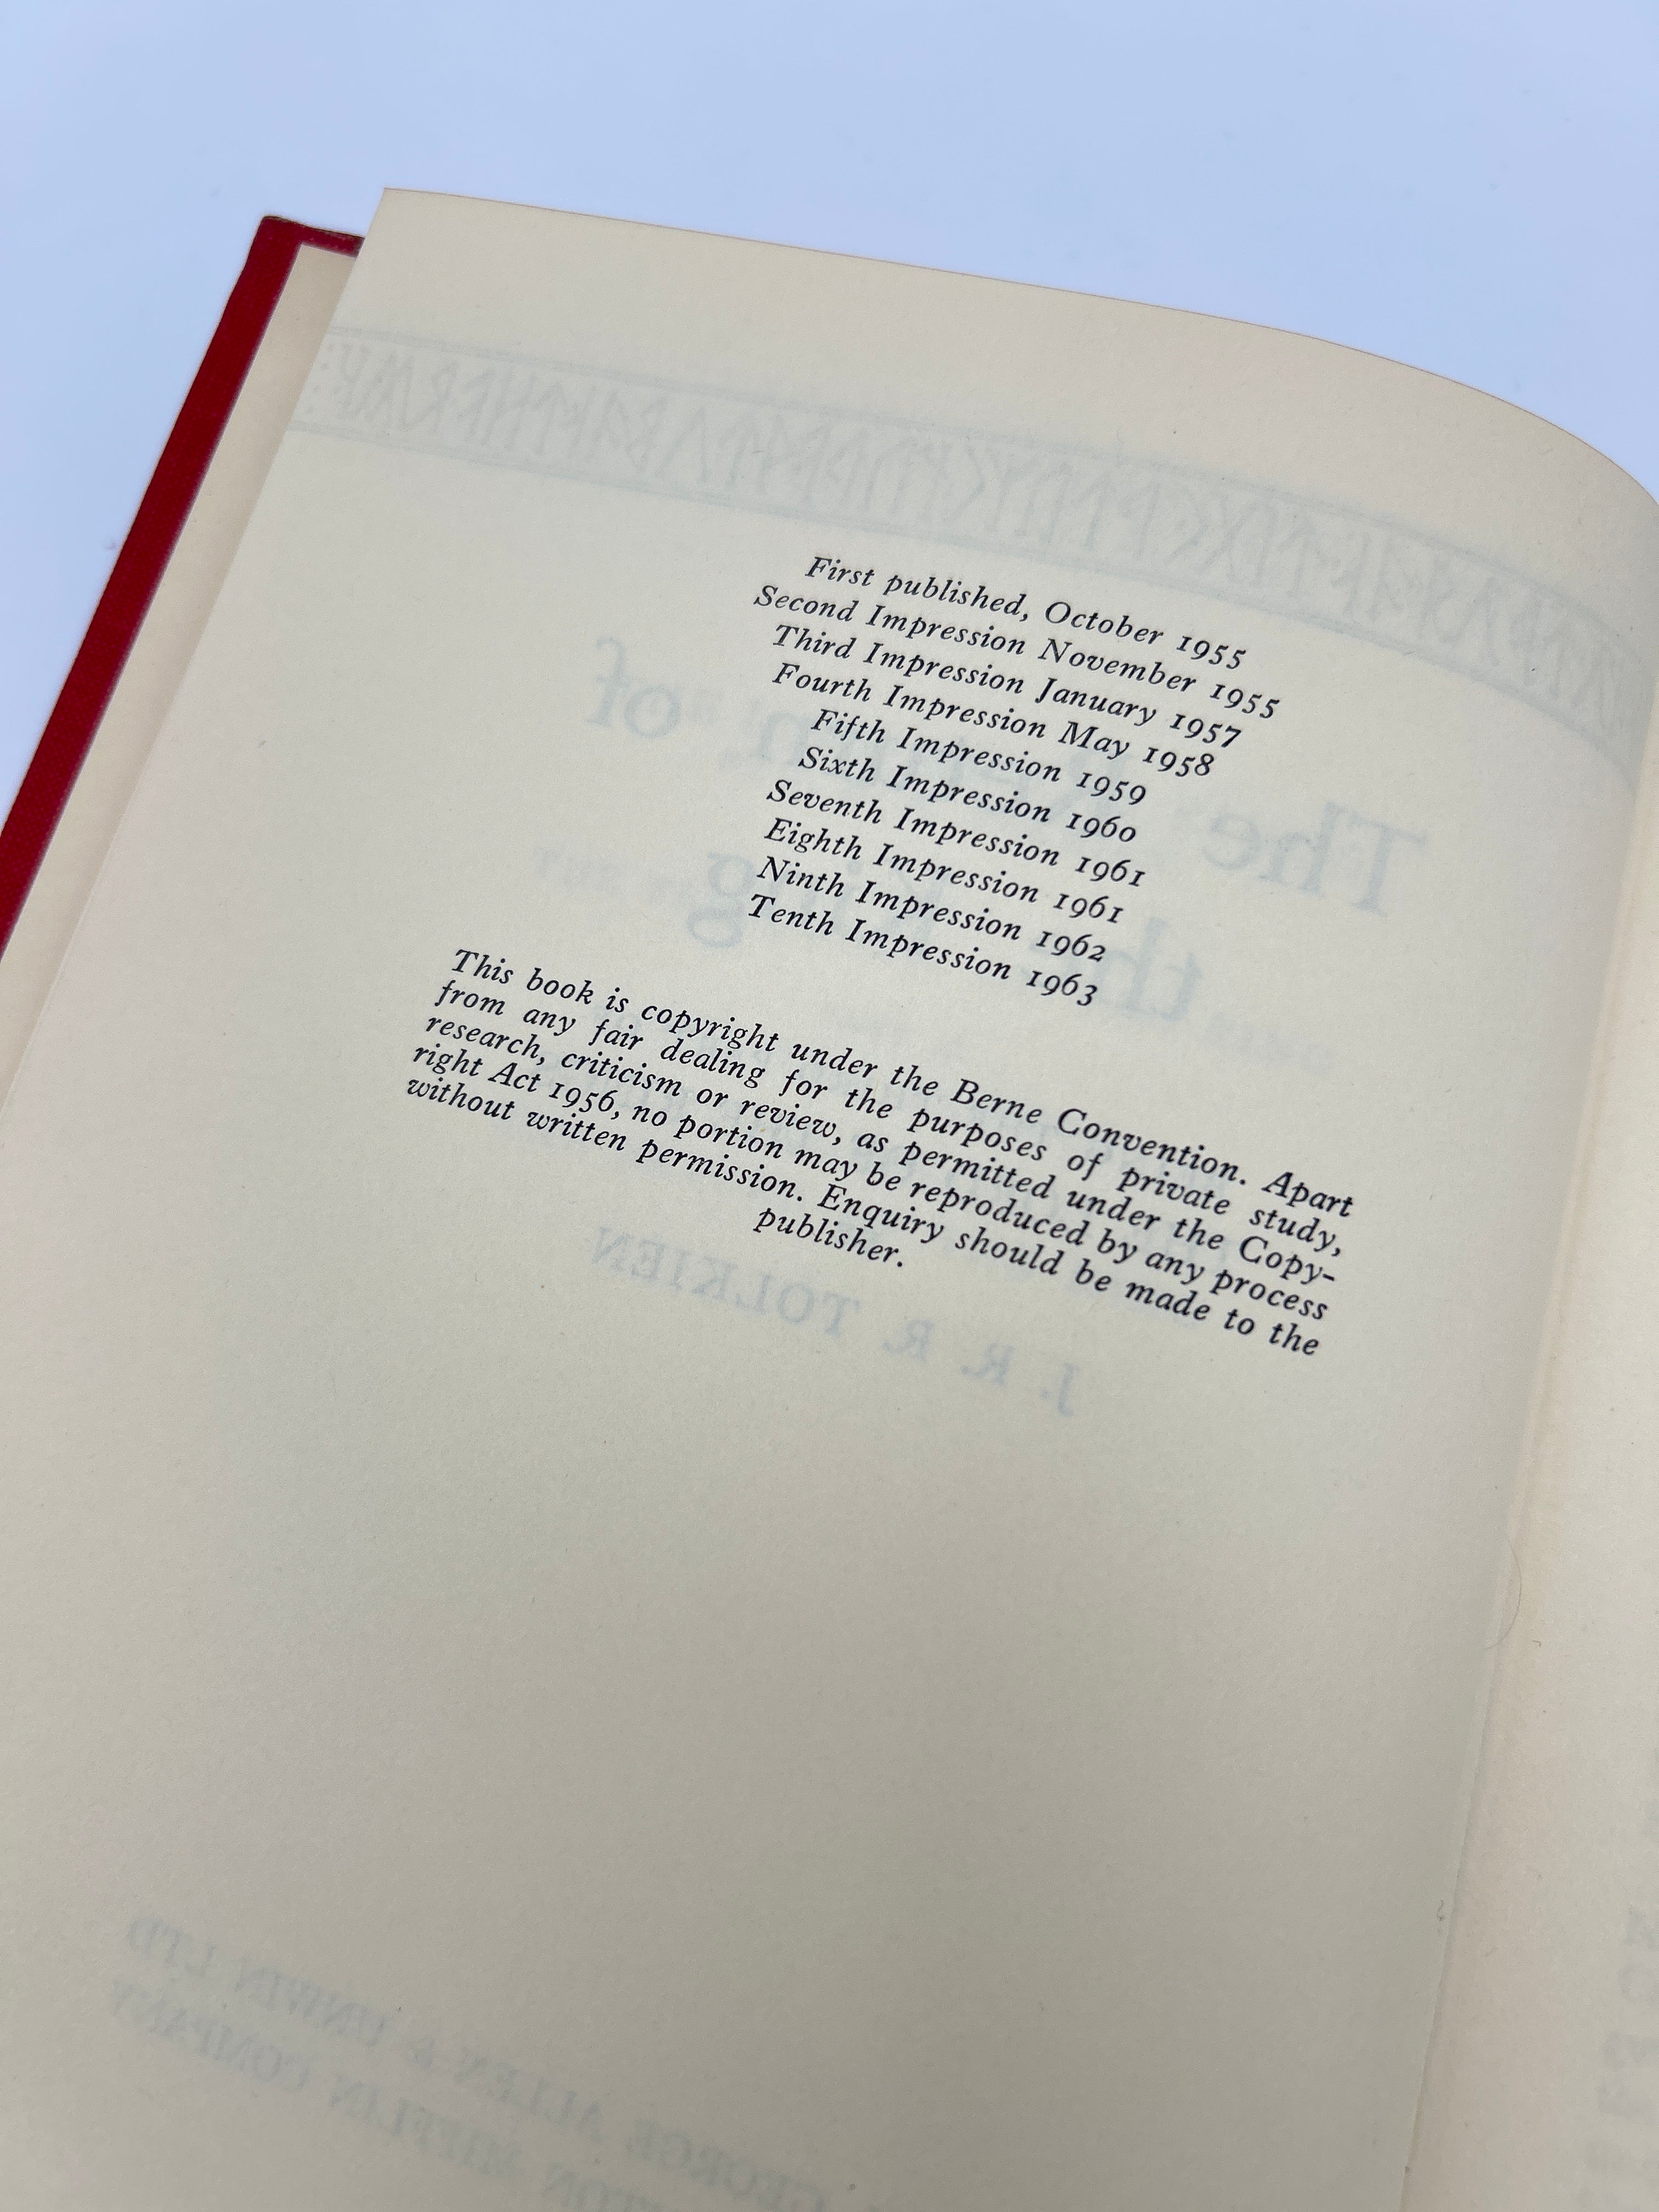 First published, October 1955
Second Impression November 1955
Third Impression January 1957
Fourth Impression May 1958
Fifth Impression 1959
Sixth Impression 1960
Seventh Impression 1961
Eighth Impression 1961
Ninth Impression 1962
Tenth Impression 1963
This book is copyright under the Berne Convention. Apart
from any fair dealing for the purposes of private study,
research, criticism or review, as permitted under the Copy-
right Act 1956, no portion may be reproduced by any process
without written permission. Enquiry should be made to the
publisher.
The of
J. R. R. TOLKIEN
GEORGE ALLEN & UNWIN LTD
MIFFLIN COMPANY